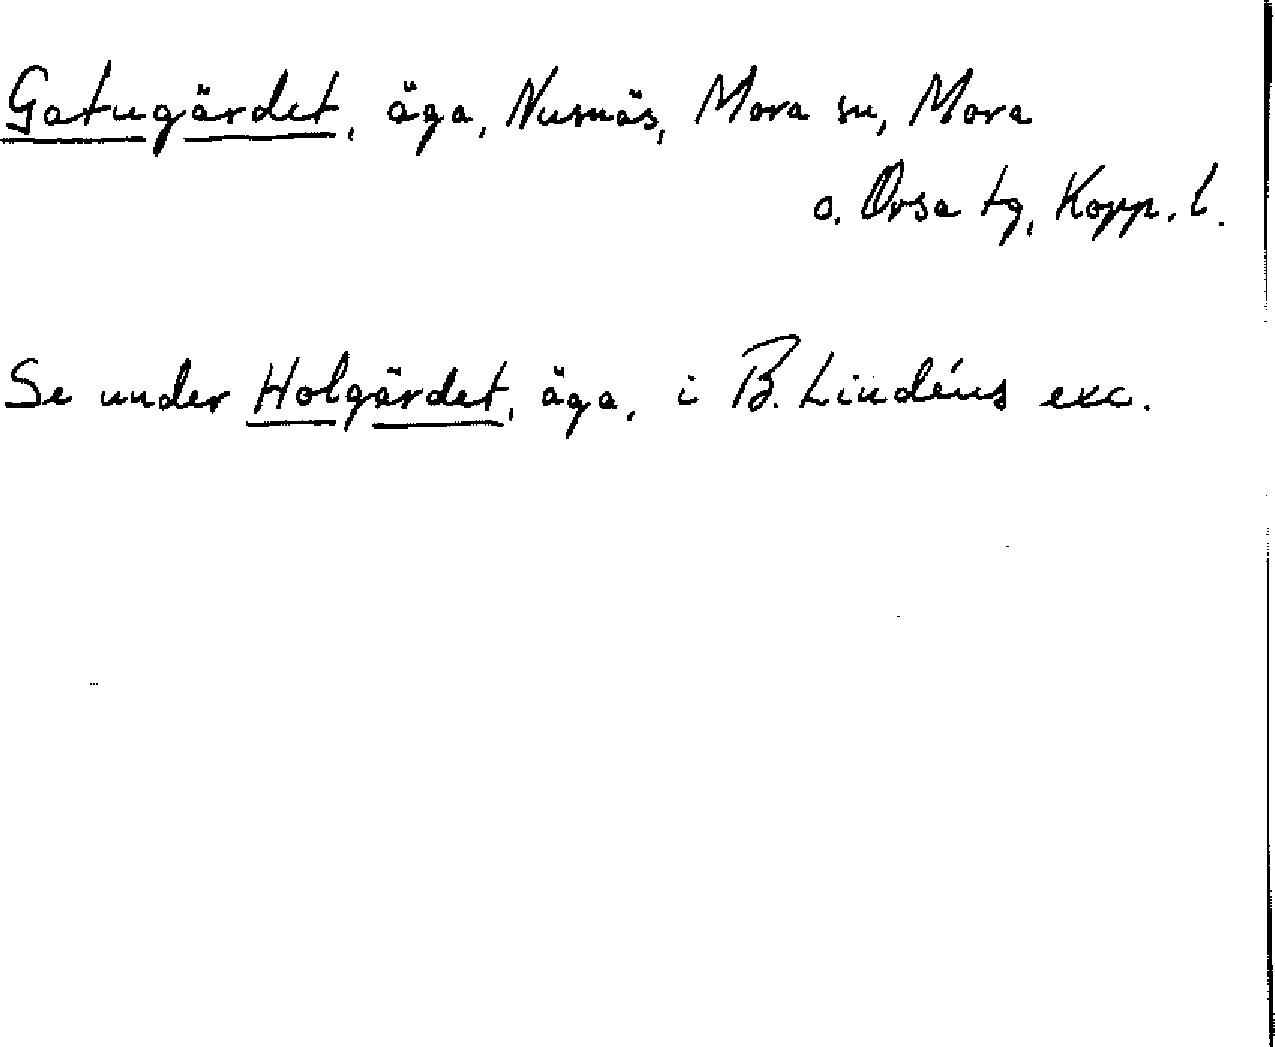 Gatugärdet, äga, Nusnäs, Mora sn, Mora
o. Orsa tg, Kopp. l.
Se under Holgärdet, äga, i B. Lindéns exc.